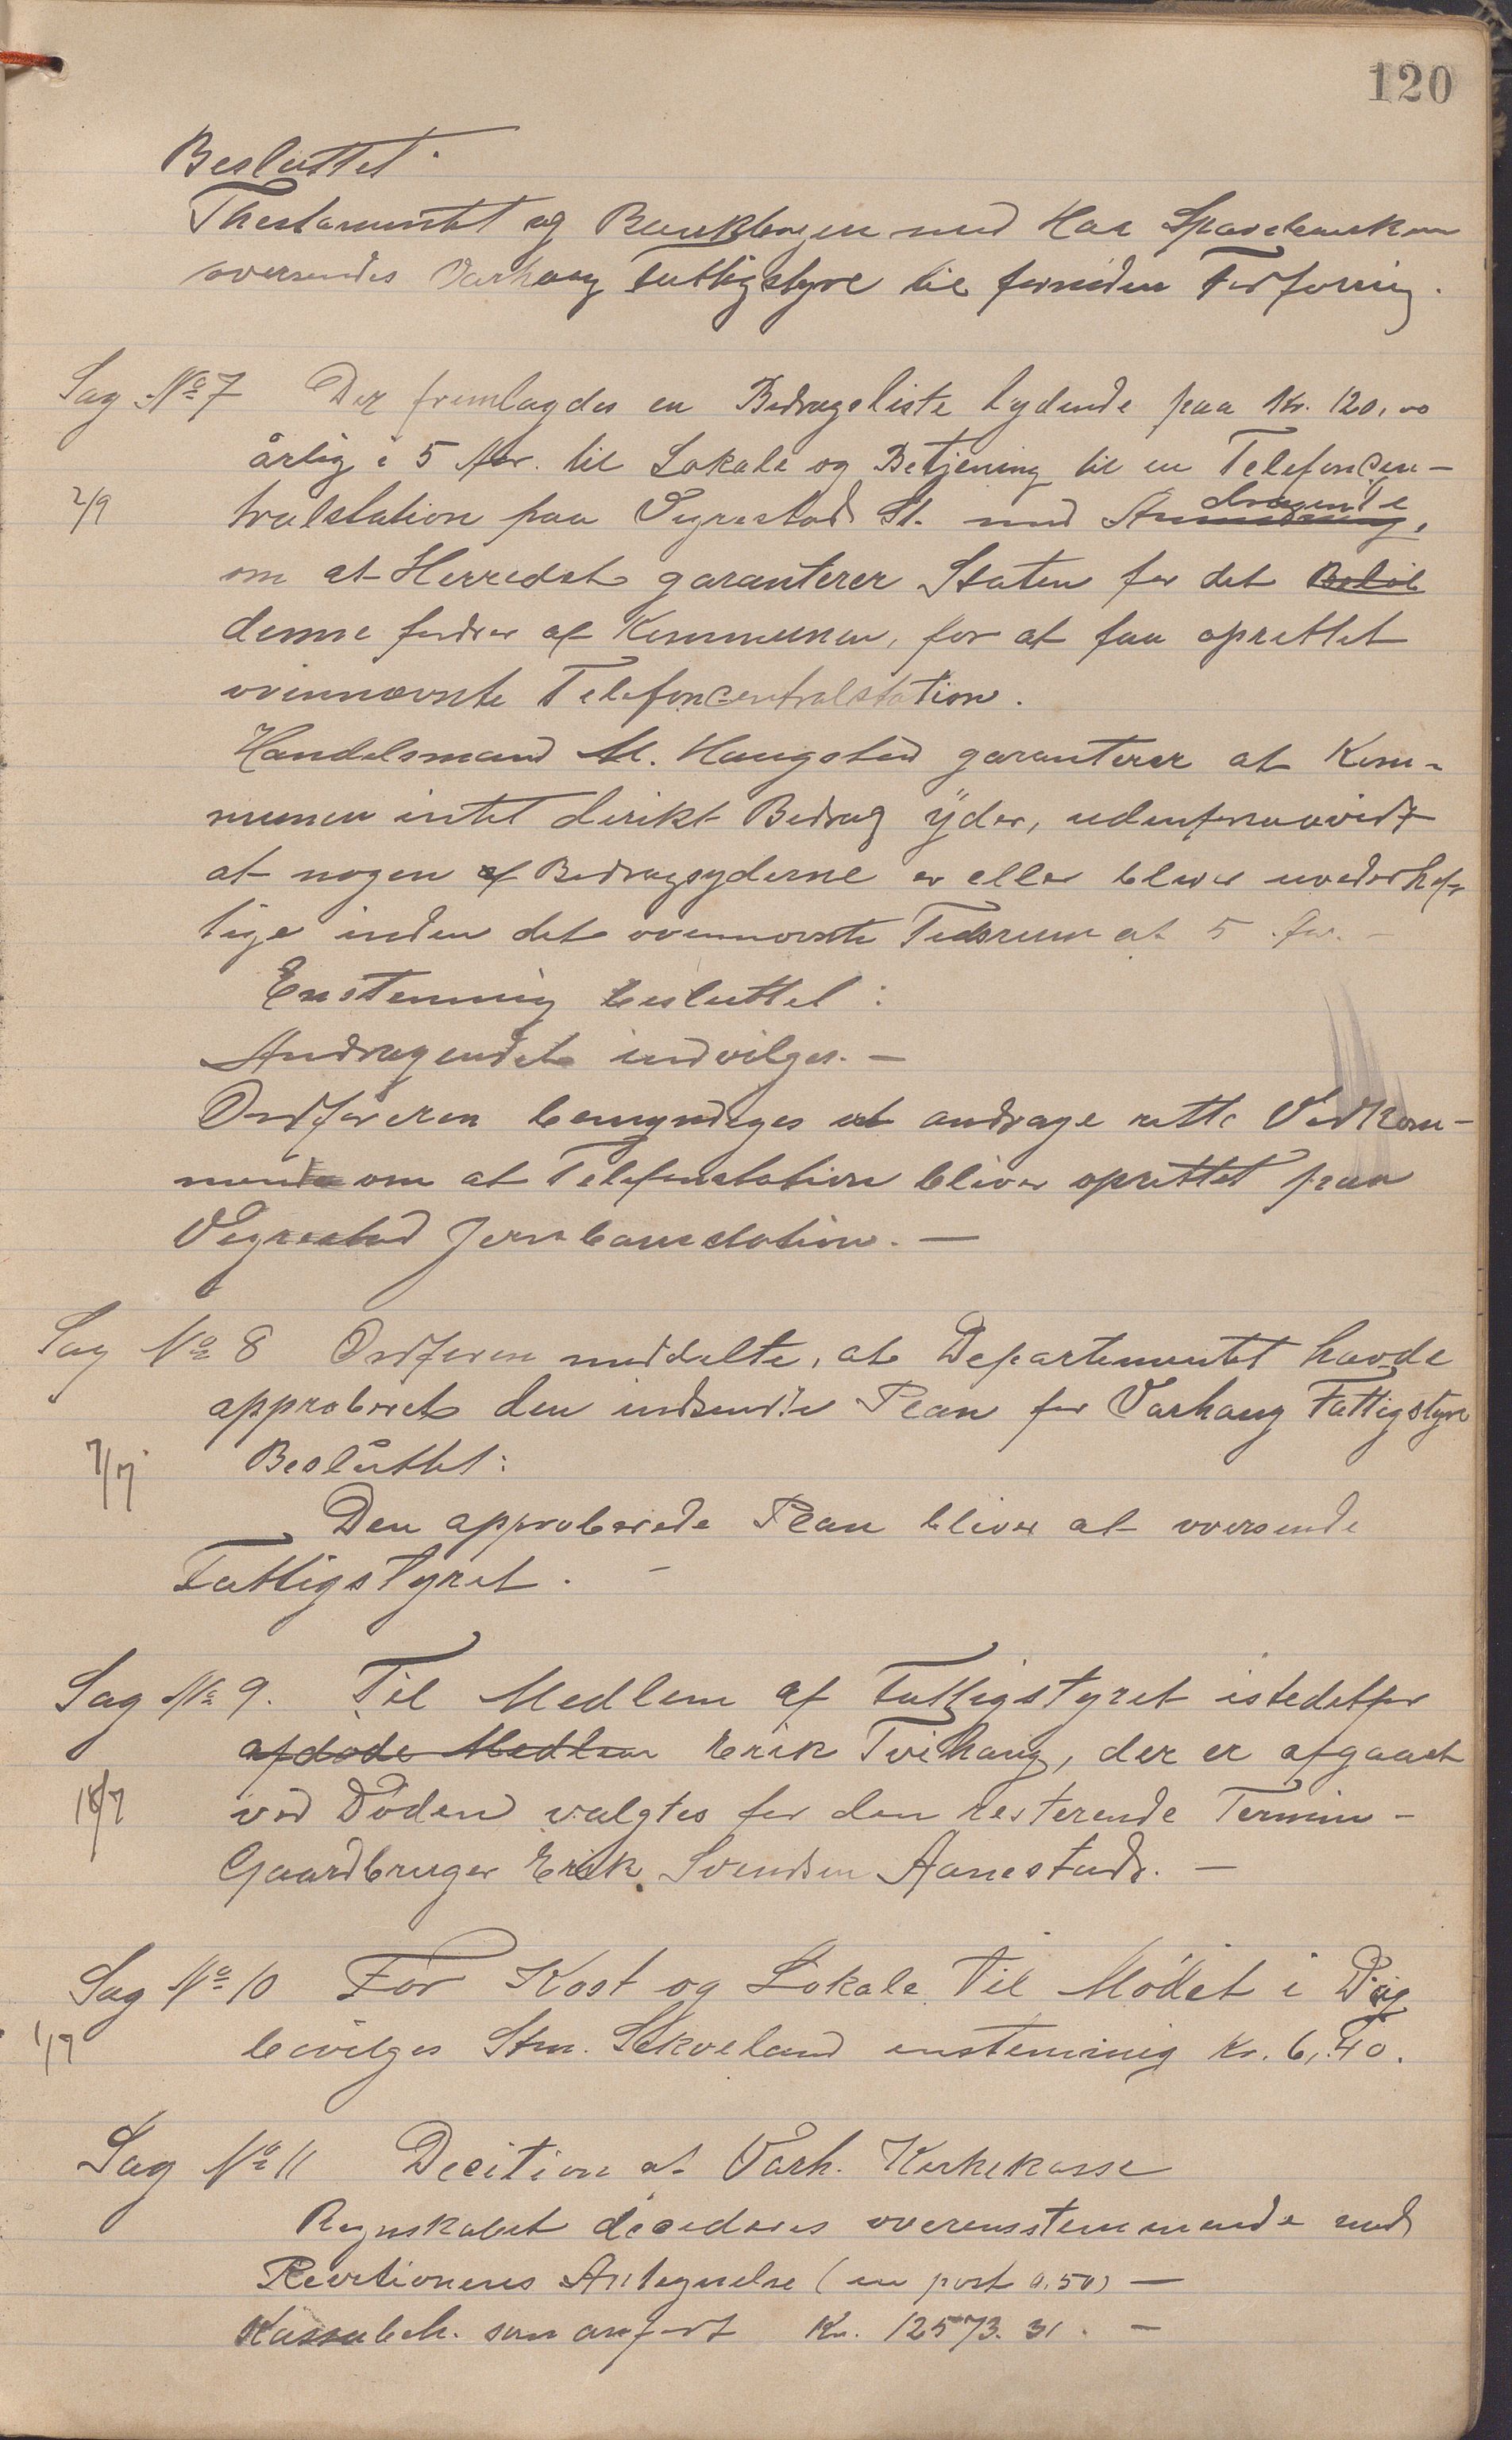 120
Besluttet:
Thestamentet og Bankbogen med Haa Sparebanken
oversendes Varhaug Fattigstyre til fornøden Forføining.
Sag № 7 Der fremlagdes en Bidragsliste lydende paa Kr. 120,00
årlig i 5 Aar. til Lokale og Betjening til en Telefoncen-
2/9 tralstation paa Vigrestad St. med Andragende
om at Herredet garanterer Staten for det Beløb
denne fordrer af Kommunen, for at faa oprettet
ovennævnte Telefoncentralstation.
Handelsmand M. Haugstad garanterer at Kom-
munen intet direkt Bidrag yder, udenforsaavidt
at nogen af Bidragsyderne er eller bliver uvederhef-
tige inden det ovennævnte Tidsrum at 5 Aar. -
Enstemmig besluttet:
Andragendet indvilges. -
Ordføreren bemyndiges at andrage rette Vedkom-
mende om at Telefonstation bliver oprettet paa
Vigrestad Jernbanestation. -
Sag № 8 Ordføreren meddelte, at Departementet havde
approberet den indsendte Plan for Varhaug Fattigstyre
7/7 Besluttet:
Den approberede Plan bliver at oversende
Fattigstyret. -
Sag № 9. Til Medlem af Fattigstyret istedetfor
afdøde Medlem Erik Tvihaug, der er afgaaet
18/7 ved Døden valgtes for den resterende Termin -
Gaardbruger Erik Svendsen Aanestad. -
Sag № 10 For Kost og Lokale til Mødet i Dag
1/7 bevilges Stm. Skveland enstemmig Kr. 6,40.
Sag № 11 Decition at Varh. Kirkekasse
Regnskabet decideres overensstemmende med
Revitionens Antegnelse (en post 0,50) -
Kassabeh. som anført Kr. 12573.31. -